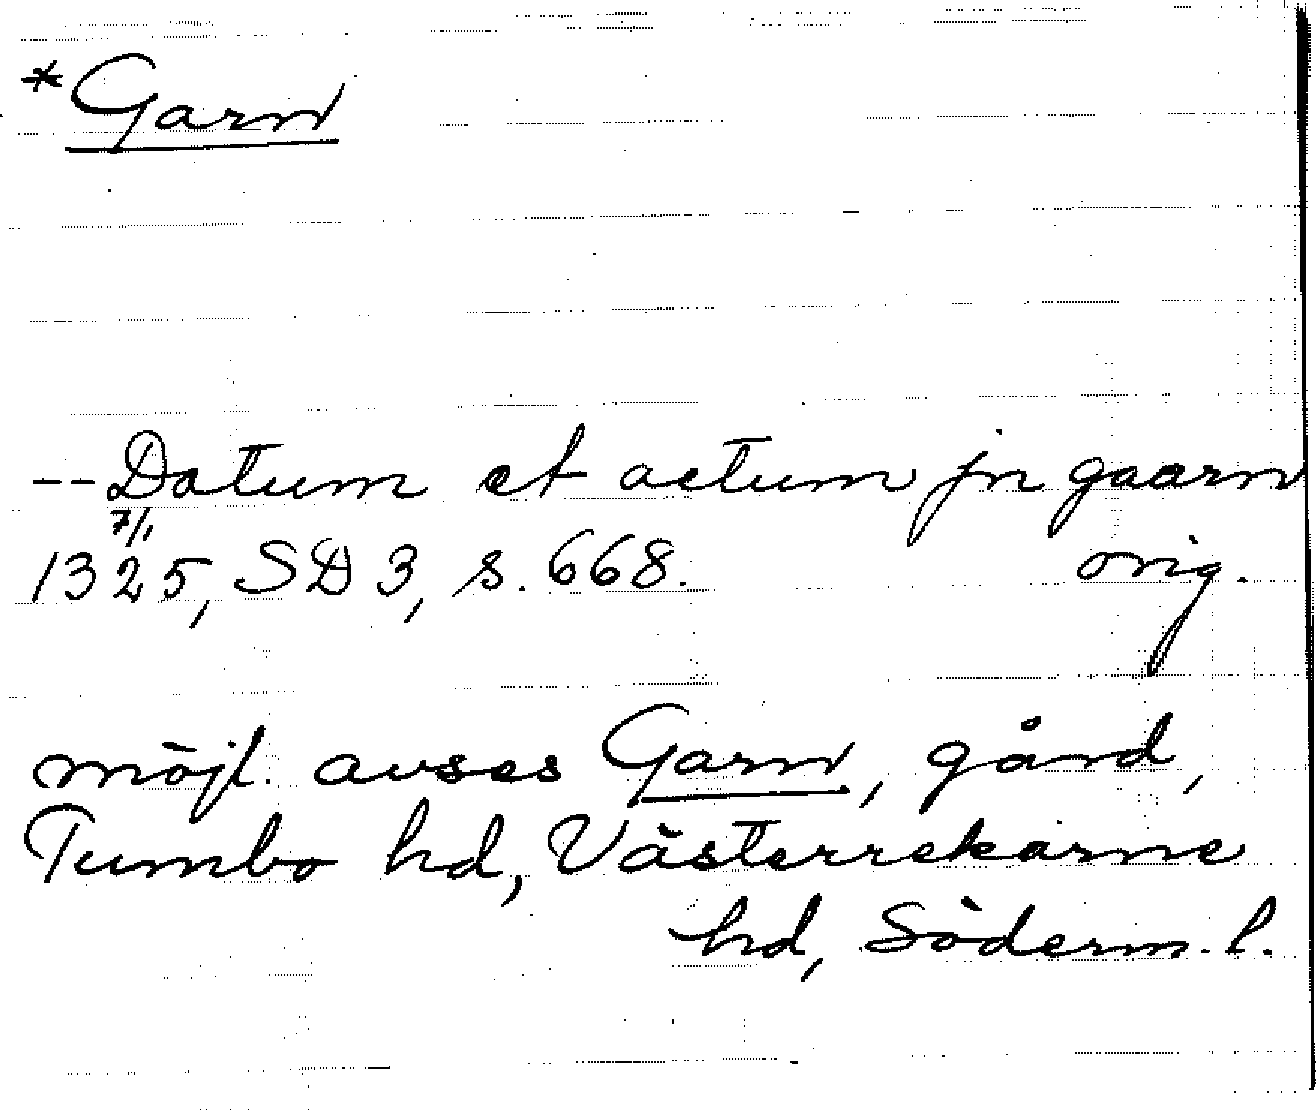 *Garn
--Datum et actum jn gaarn
7/1
1325, SD 3, s. 668. orig.
möjl. avses Garn, gård,
Tumbo hd, Västerrekarne
hd, Söderm. l.